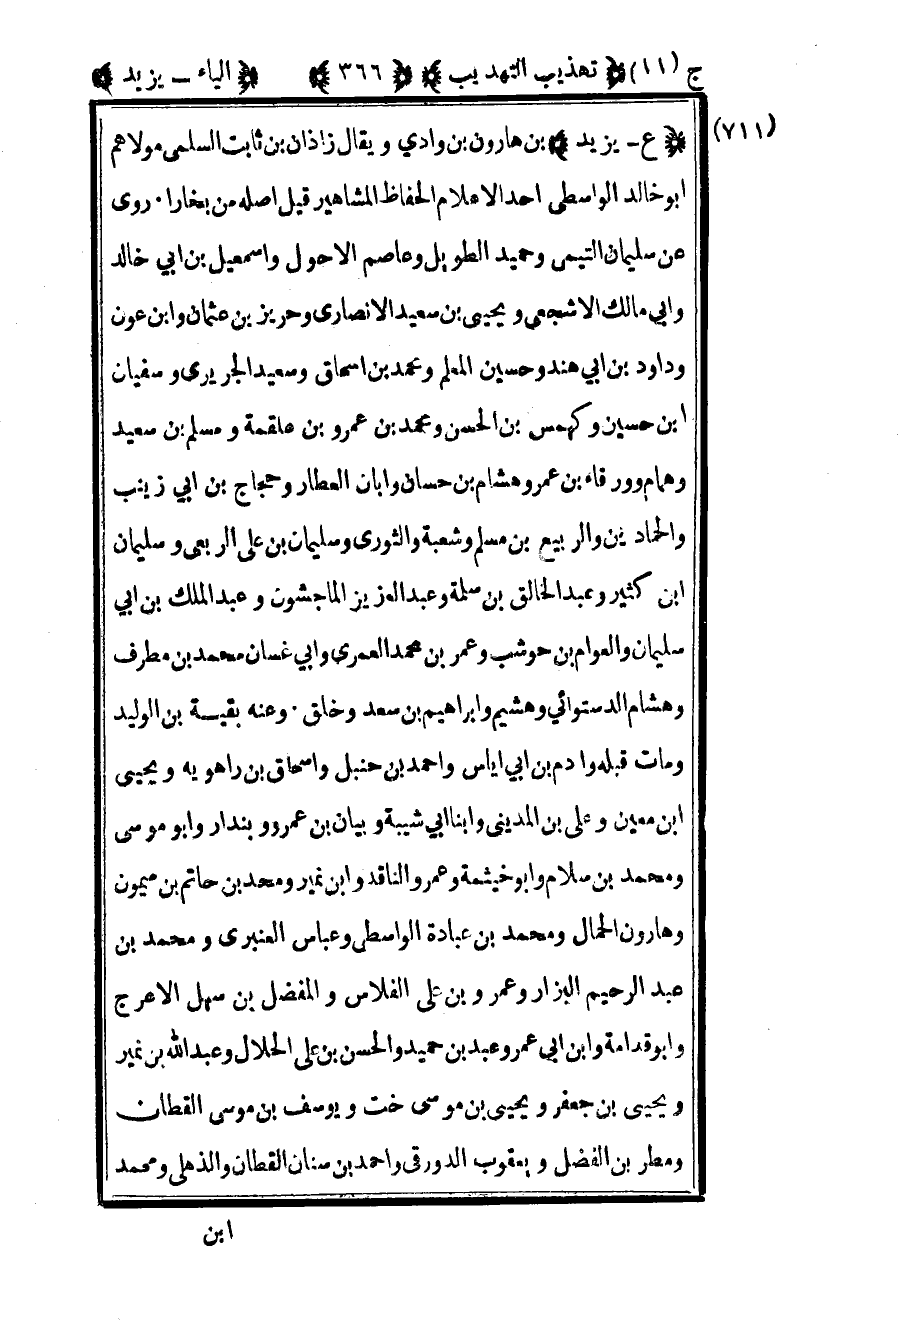 ج (١١) ﴿ تهذيب التهذيب ﴾ ﴿ ٣٦٦ ﴾ ﴿ الياء ـ يزيد ﴾
(٧١١)
﴿ ع ـ يزيد ﴾ بن هارون بن وادي و يقال زاذان بن ثابت السلمى مولاهم
ابو خالد الواسطى احد الاعلام الحفاظ المشاهير قيل اصله من بخارا · روى
عن سليمان التيمى وحميد الطويل وعاصم الاحول واسمعيل بن ابي خالد
وابي مالك الاشجعى و يحيى بن سعيد الانصارى وحريز بن عثمان وابن عون
وداود بن ابي هند وحسين المعلم ومحمد بن اسحاق وسعيد الجريرى و سفيان
ابن حسين و كهمس بن الحسن ومحمد بن عمرو بن علقمة و مسلم بن سعيد
وهمام وورقاء بن عمر وهشام بن حسان وابان العطار وحجاج بن ابي زينب
والحمادين والربيع بن مسلم وشعبة والثورى وسليمان بن على الربعى و سليمان
ابن كثير وعبد الخالق بن سلمة وعبد العزيز الماجشون و عبد الملك بن ابي
سليمان والعوام بن حوشب وعمر بن محمد العمرى وابي غسان محمد بن مطرف
وهشام الدستوائي وهشيم وابراهيم بن سعد وخلق · وعنه بقية بن الوليد
ومات قبله وادم بن ابي اياس واحمد بن حنبل واسحاق بن راهويه و يحيى
ابن معين و على بن المدينى وابنا ابي شيبة و بيان بن عمرو و بندار وابو موسى
ومحمد بن سلام وابو خيثمة وعمرو الناقد وابن نمير ومحمد بن حاتم بن ميمون
وهارون الحمال ومحمد بن عبادة الواسطى وعباس العنبرى و محمد بن
عبد الرحيم البزار وعمرو بن على الفلاس و المفضل بن سهل الاعرج
وابو قدامة وابن ابي عمر وعبد بن حميد والحسن بن على الحلال وعبد الله بن نمير
و يحيى بن جعفر و يحيى بن موسى خت و يوسف بن موسى القطان
ومطر بن الفضل و يعقوب الدورقى واحمد بن سنان القطان والذهلى ومحمد
ابن